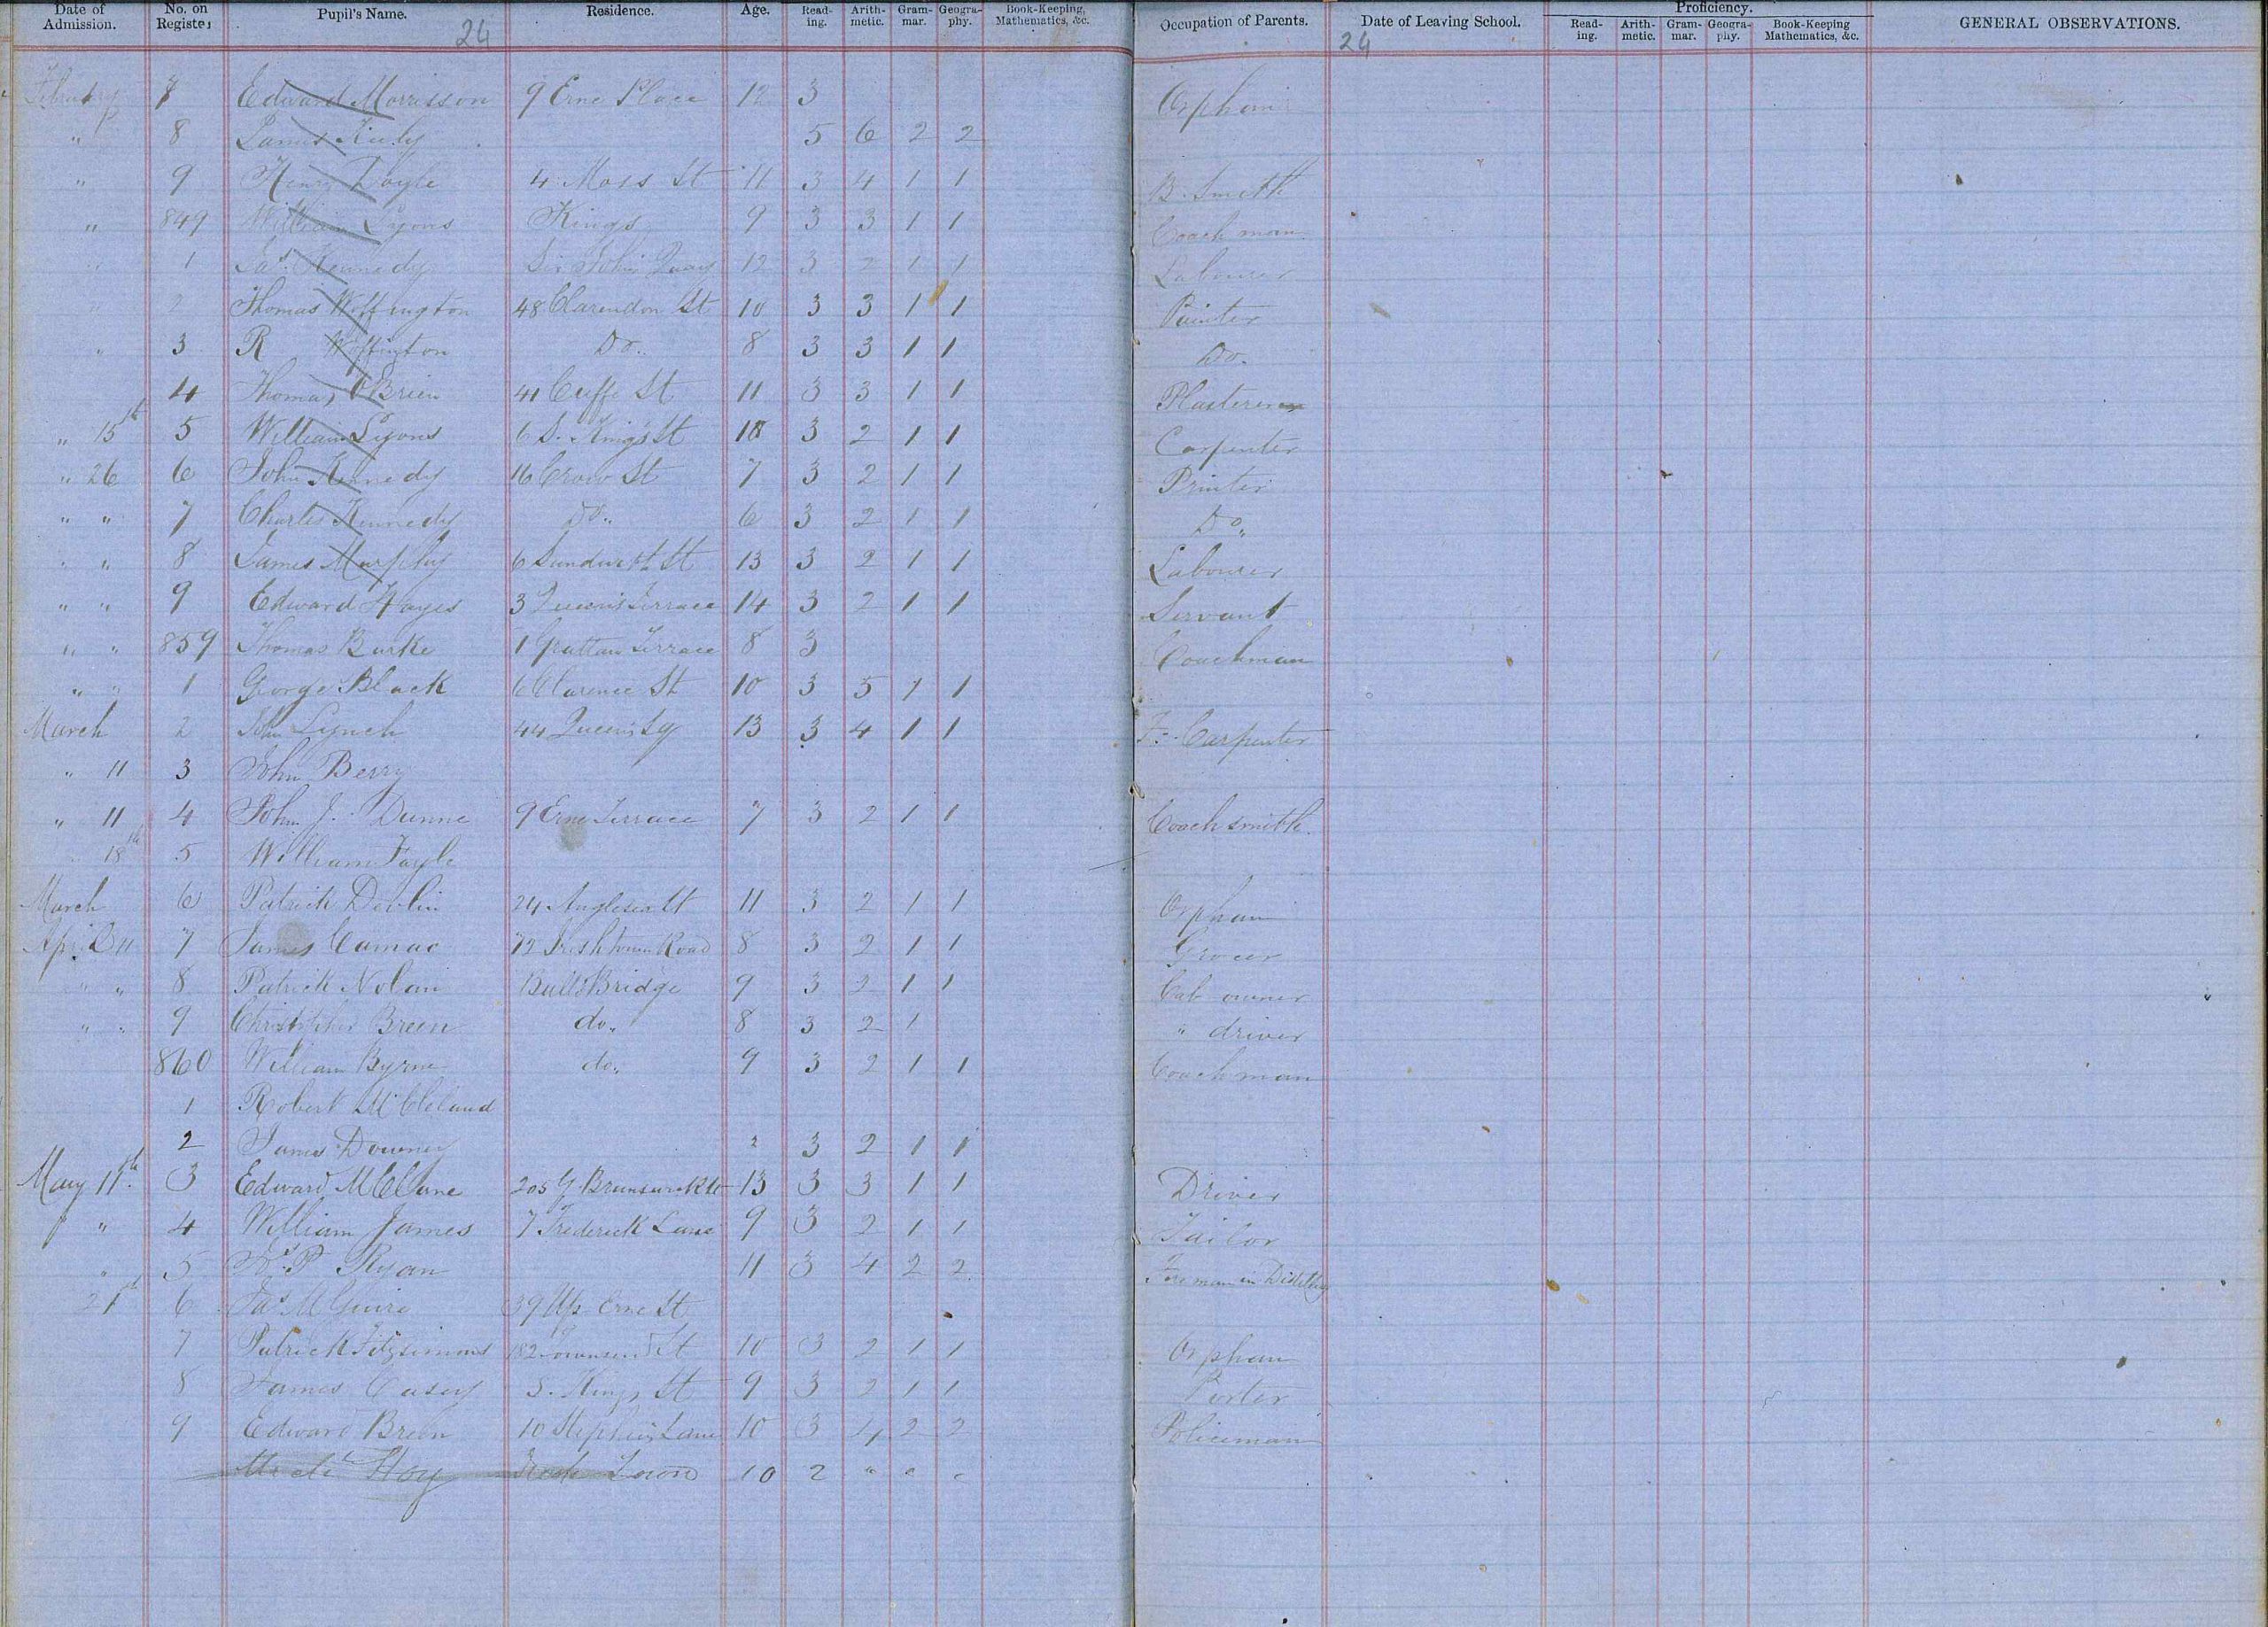 Date of Admission. No. on Register Pupil's Name. Residence. Age. Reading. Arithmetic. Grammar. Geography. Book-Keeping, Mathematics, &c. Occupation of Parents. Date of Leaving School. Proficiency. Reading. Arithmetic. Grammar. Geography. Book-Keeping Mathematics, &c. GENERAL OBSERVATIONS.
24 24
February 7 Edward Morrisson 9 Erne Place 12 3 Orphan
" 8 James 5 6 2 2
" 9 Henry Doyle 4 Moss St 11 3 4 1 1 B. Smith
" 849 William Lyons Kings 9 3 3 1 1 Coachman
" 1 Jas. Kennedy Sir John Quay 12 3 2 1 1 Labourer
" 2 Thomas Woffington 48 Clarendon St 10 3 3 1 1 Painter
" 3 R Woffinton Do. 8 3 3 1 1 Do.
4 Thomas O'Brien 41 Cuffe St 11 3 3 1 1 Plasterer
" 15th 5 William Lyons 6 S. King's St 10 3 2 1 1 Carpenter
" 26 6 John Kennedy 16 Crow St 7 3 2 1 1 Printer
" " 7 Charles Kennedy Do. 6 3 2 1 1 Do.
" " 8 James Murphy 6 Sandwith St 13 3 2 1 1 Labourer
" " 9 Edward Hayes 3 Queen's Terrace 14 3 2 1 1 Servant
" " 859 Thomas Burke 1 Grattan Terrace 8 3 Coachman
" " 1 George Black 6 Clarence St 10 3 5 1 1
March 2 John Lynch 44 Queens Sq 13 3 4 1 1 F. Carpenter
" 11 3 John Berry
" 11 4 John J. Dunne 9 Erne Terrace 7 3 2 1 1 Coachsmith.
18th 5 William Fayle
March 6 Patrick Devlin 24 Anglesea St 11 3 2 1 1 Orphan
April 11 7 James Camac 72 Irishtown Road 8 3 2 1 1 Grocer
" " 8 Patrick Nolan Balls Bridge 9 3 2 1 1 Cab owner
" " 9 Christopher Breen do. 8 3 2 1 " driver
860 William Byrne do. 9 3 2 1 1 Coachman
1 Robert McCleland
2 James Downey 3 2 1 1
May 11th. 3 Edward McClune 205 G. Brunswick St 13 3 3 1 1 Driver
" 4 William James 7 Frederick Lane 9 3 2 1 1 Tailor
" 5 P Ryan 11 3 4 2 2 Foreman in Distillery
21st 6 Jas McGuire 39 Up. Erne St
7 Patrick Fitzsimons 182 Townsend St 10 3 2 1 1 Orphan
8 James Casey S. Kings St 9 3 2 1 1 Porter
9 Edward Breen 10 Stephen's Lane 10 3 4 2 2 Policeman
Hoy Town 10 2 " " "